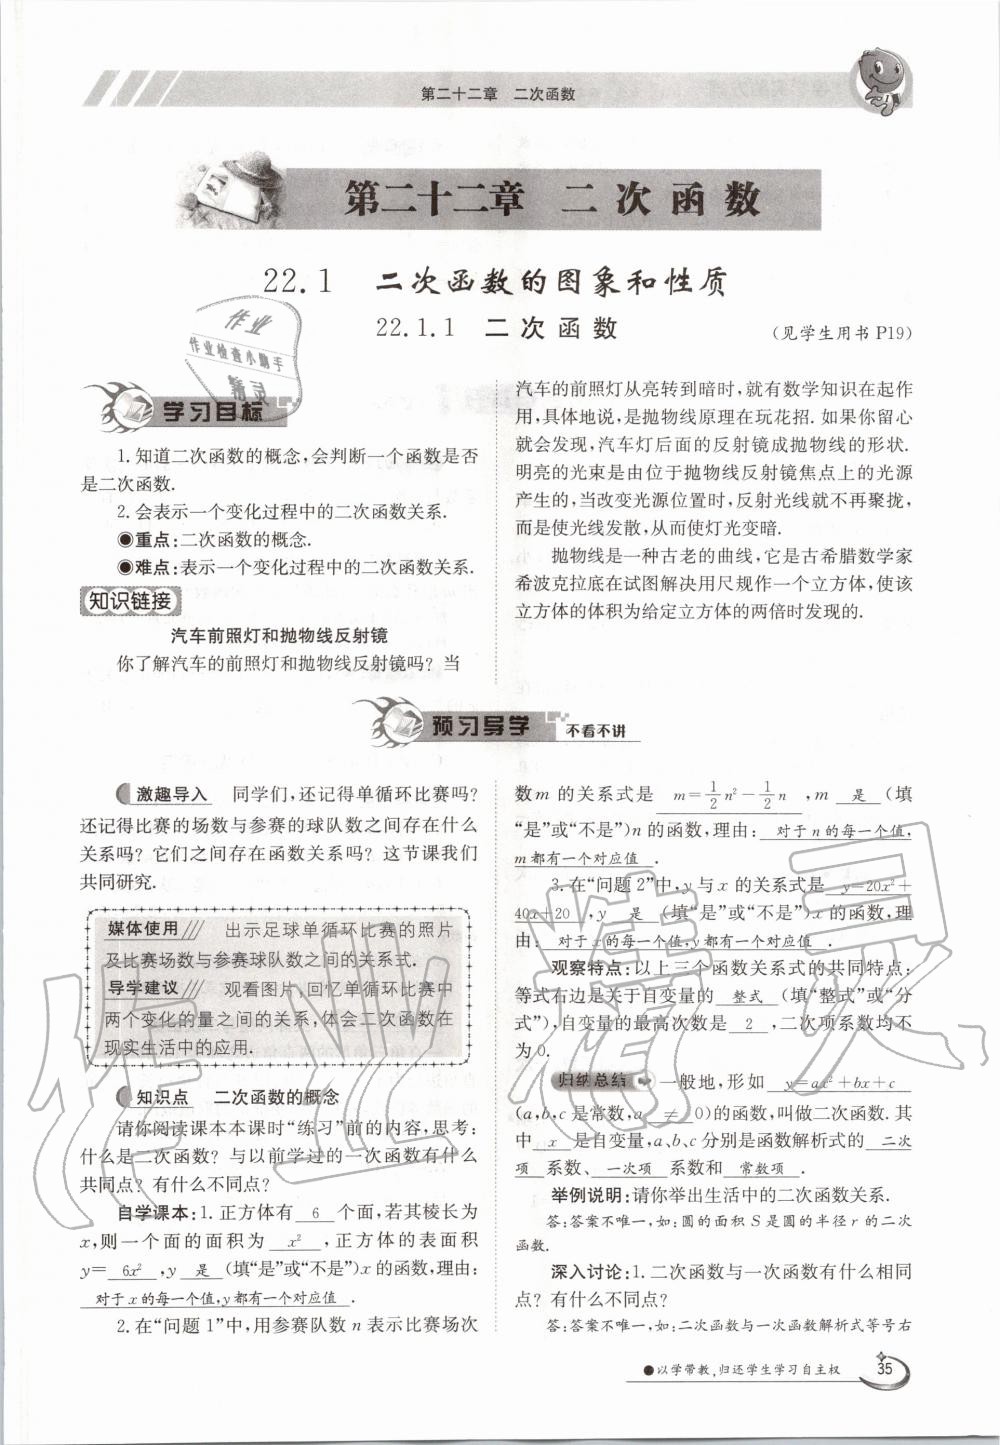 第二十二章 二次函数
第二十二章 二次函数
22.1 二次函数的图象和性质
22.1.1 二次函数
(见学生用书 P19)
作业
作业检查小帮手
精灵
学习目标
1. 知道二次函数的概念,会判断一个函数是否
是二次函数.
2. 会表示一个变化过程中的二次函数关系.
●重点:二次函数的概念.
●难点:表示一个变化过程中的二次函数关系.
知识链接
汽车前照灯和抛物线反射镜
你了解汽车的前照灯和抛物线反射镜吗? 当
汽车的前照灯从亮转到暗时,就有数学知识在起作
用,具体地说,是抛物线原理在玩花招. 如果你留心
就会发现,汽车灯后面的反射镜成抛物线的形状.
明亮的光束是由位于抛物线反射镜焦点上的光源
产生的,当改变光源位置时,反射光线就不再聚拢,
而是使光线发散,从而使灯光变暗.
抛物线是一种古老的曲线,它是古希腊数学家
希波克拉底在试图解决用尺规作一个立方体,使该
立方体的体积为给定立方体的两倍时发现的.
预习导学 不看不讲
激趣导入 同学们,还记得单循环比赛吗?
还记得比赛的场数与参赛的球队数之间存在什么
关系吗? 它们之间存在函数关系吗? 这节课我们
共同研究.
媒体使用 出示足球单循环比赛的照片
及比赛场数与参赛球队数之间的关系式.
导学建议 观看图片,回忆单循环比赛中
两个变化的量之间的关系,体会二次函数在
现实生活中的应用.
知识点 二次函数的概念
请你阅读课本本课时“练习”前的内容,思考:
什么是二次函数? 与以前学过的一次函数有什么
共同点? 有什么不同点?
自学课本:1. 正方体有 6 个面,若其棱长为
x,则一个面的面积为 x² ,正方体的表面积
y= 6x² ,y 是 (填“是”或“不是”)x 的函数,理由:
对于x的每一个值,y都有一个对应值 .
2. 在“问题 1”中,用参赛队数 n 表示比赛场次
数m 的关系式是 m=1/2n²-1/2n ,m 是 (填
“是”或“不是”)n 的函数,理由: 对于n的每一个值,
m都有一个对应值 .
3. 在“问题 2”中,y 与 x 的关系式是 y=20x²+
40x+20 ,y 是 (填“是”或“不是”)x 的函数,理
由: 对于x的每一个值,y都有一个对应值 .
观察特点:以上三个函数关系式的共同特点:
等式右边是关于自变量的 整式 (填“整式”或“分
式”),自变量的最高次数是 2 ,二次项系数均不
为 0.
归纳总结 一般地,形如 y=ax²+bx+c
(a,b,c 是常数,a ≠ 0)的函数,叫做二次函数. 其
中 x 是自变量,a、b、c 分别是函数解析式的 二次
项 系数、 一次项 系数和 常数项 .
举例说明:请你举出生活中的二次函数关系.
答:答案不唯一,如:圆的面积 S 是圆的半径 r 的二次
函数.
深入讨论:1. 二次函数与一次函数有什么相同
点? 有什么不同点?
答:答案不唯一,如:二次函数与一次函数解析式等号右
●以学带教,归还学生学习自主权
35
作业精灵